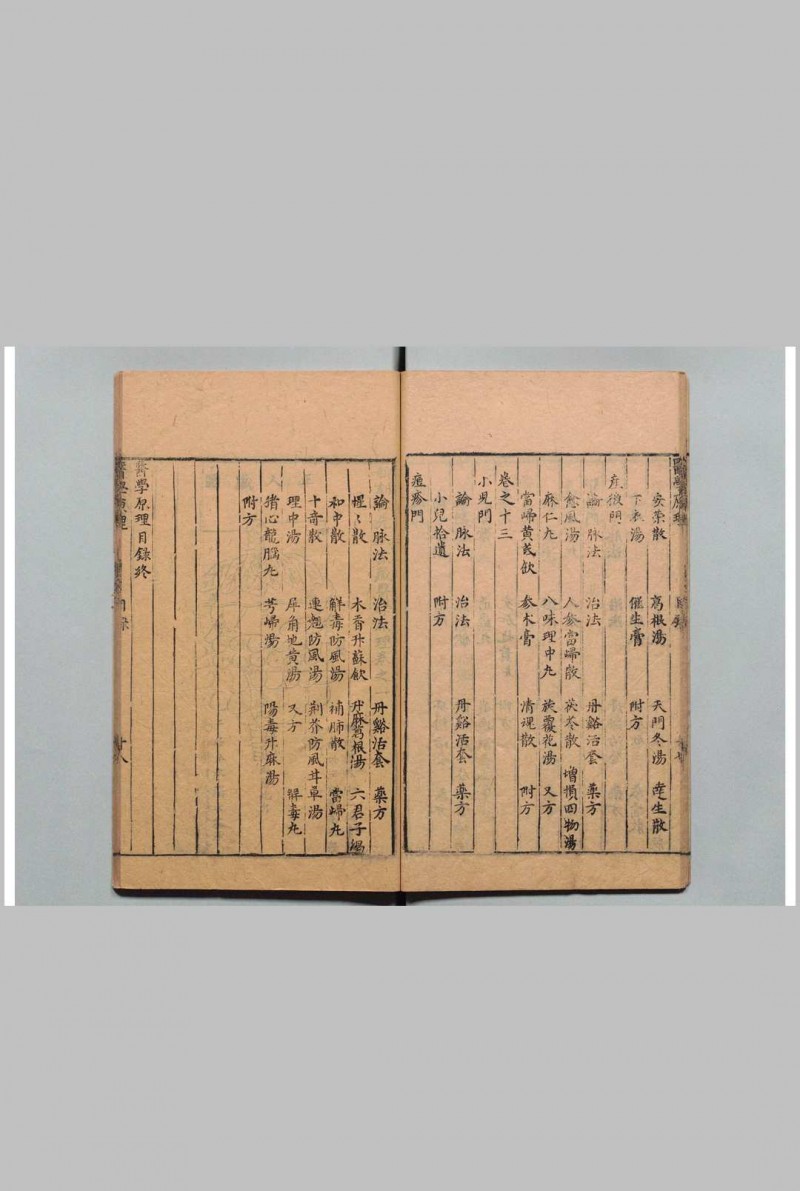 醫學原理
安榮散 葛根湯 天門冬湯 達生散
下 湯 催生膏 附方
産後門
論 脉法 治法 丹谿活套 藥方
愈風湯 人參當歸散 茯苓散 增損四物湯
麻仁丸 八味理中丸 旋覆花湯 又方
當歸黃芪飲 參朮膏 清魂散 附方
卷之十三
小児門
論 脉法 治法 丹谿活套 藥方
小兒拾遺 附方
痘疹門
論 脉法 治法 丹谿活套 藥方
惺惺散 木香升蘇飲 升麻葛根湯 六君子湯
和中散 解毒防風湯 補肺散 當歸丸
十奇散 連翹防風湯 荆芥防風甘草湯
理中湯 犀角地黃湯 又方 解毒丸
猪心龍腦丸 芎歸湯 陽毒升麻湯
附方
醫學原理目錄終
醫學原理 目錄 十八